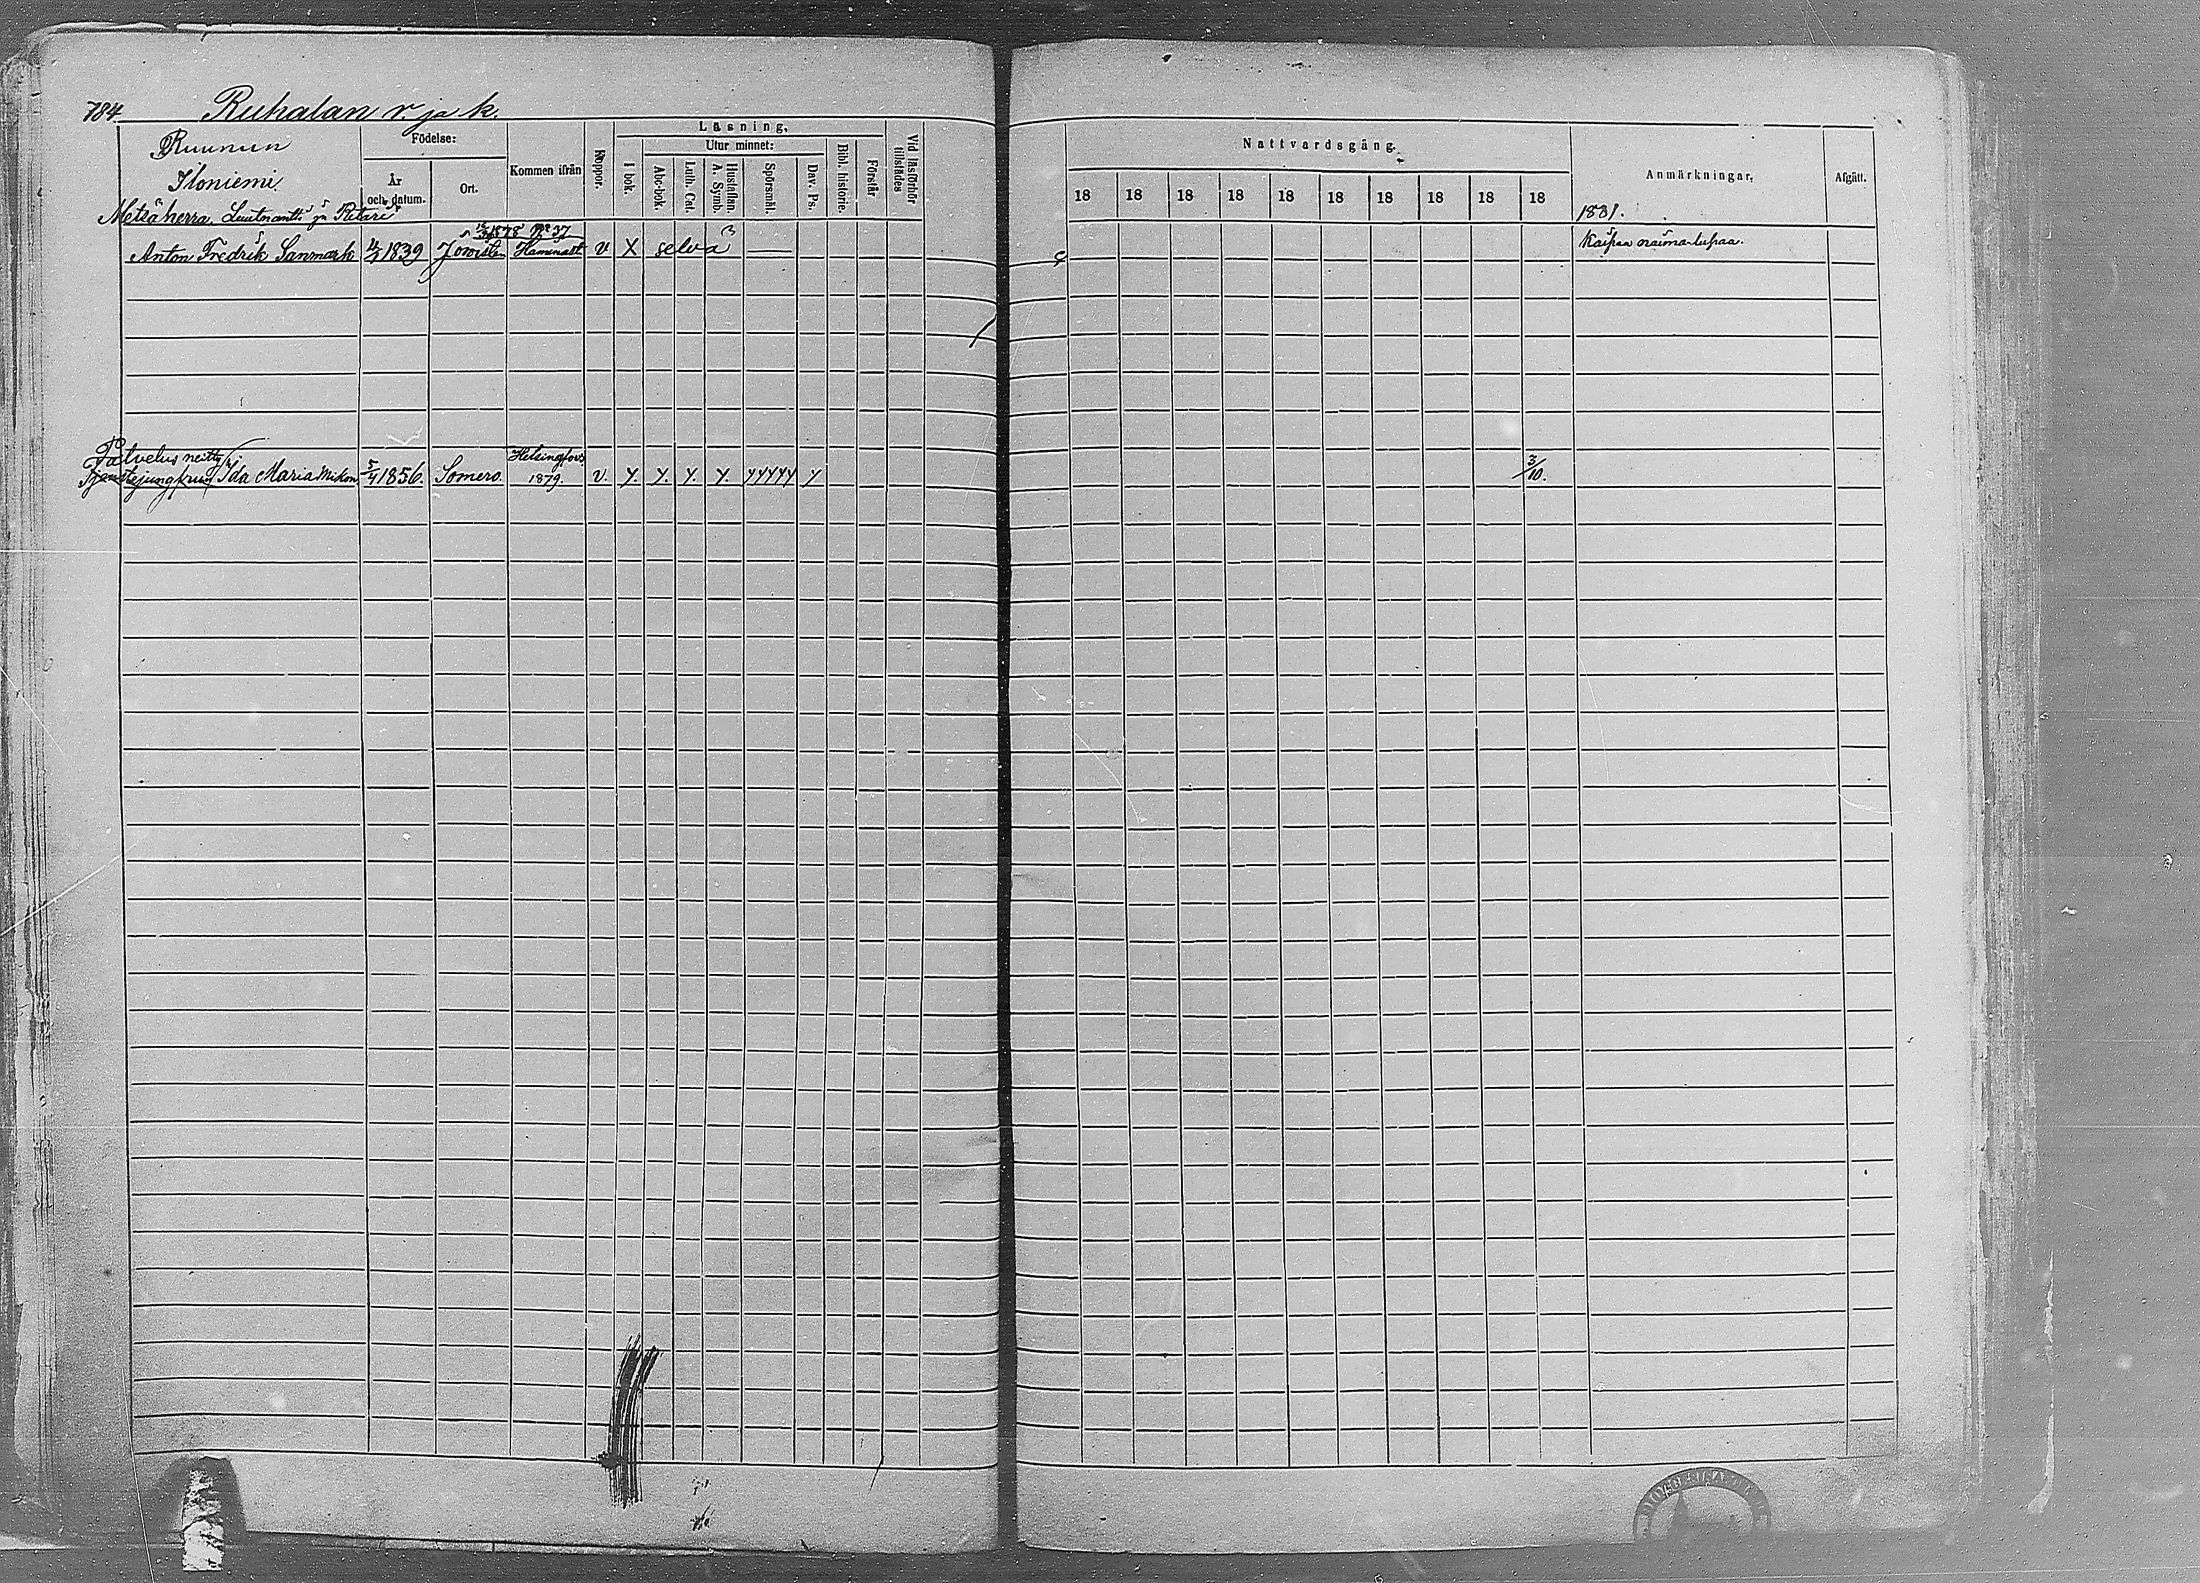 784.
Ruhalan r. ja k.
Ruunun
Iloniemi.
Födelse:
År och datum.
Ort.
Kommen ifrån
Koppor.
Läsning.
I bok.
Utur minnet:
Abc-bok.
Luth. Cat.
Hustaflan. A. Symb.
Spörsmål.
Dav. Ps.
Bibl. historie.
Förstår
Vid läsförhör tillstädes
Nattvardsgång.
18 18 18 18 18 18 18 18 18 18
Anmärkningar.
1881.
Afgått.
Metsäherra, Leutnantti ja Ritari
1878 No 37
Anton Fredrik Sanmark 4/2 1839 Jowisten v X selvä
Kaipaa naima-lupaa.
Palvelus neitty
Helsingfors
Tjenstejungfrun Ida Maria Mikon 5/4 1856. Somero. 1879. v. y. y. y. y. yyyyy y 3/10.